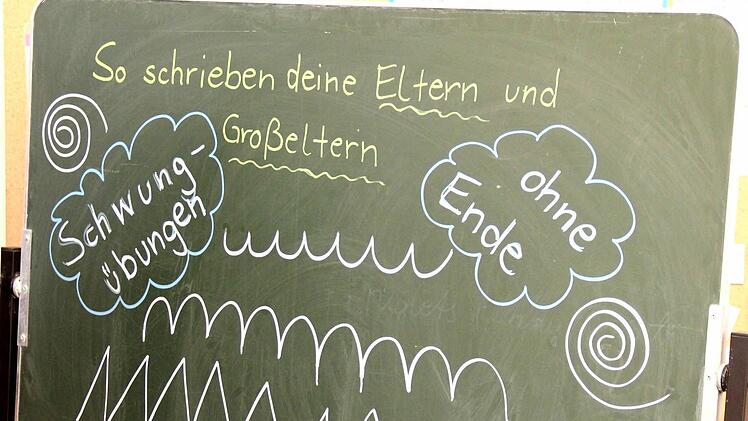 So schrieben deine Eltern und
Großeltern
Schwung-
übungen
ohne
Ende